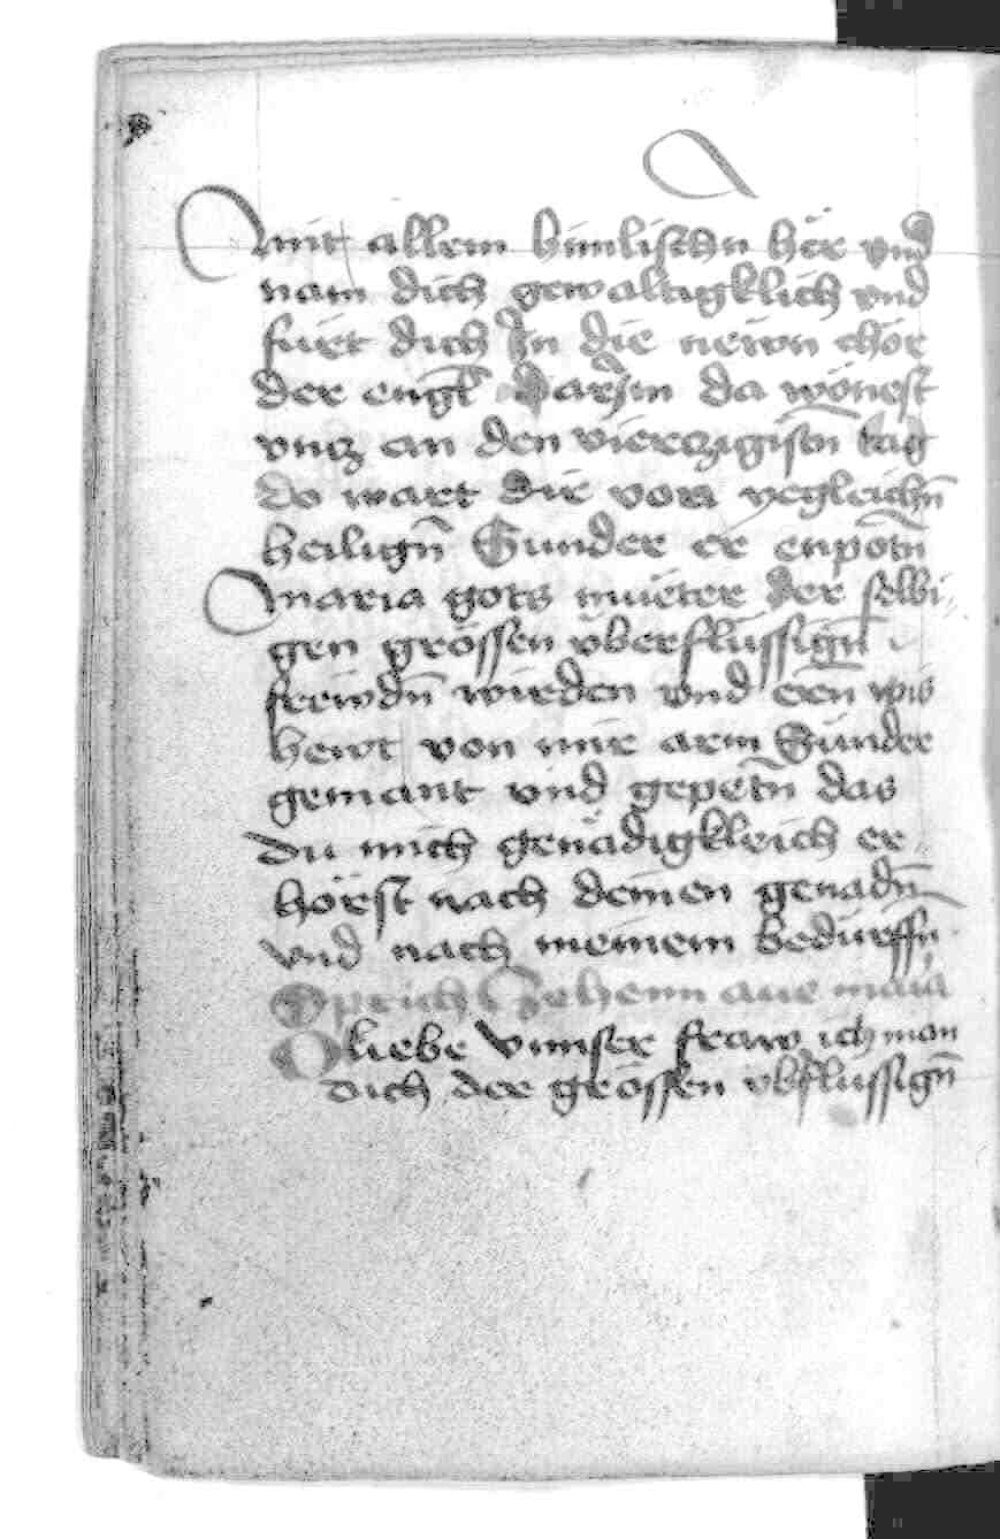 mit allem himlischn hër vnd
nam dich gewaltigklich vnd
fuert dich In die newn chör
der engl̄ darJnn da wonest
vncz an den vierczigistn̄ tag
do wart dir von yegleichn̄
heilign̄ Sunder er enpotn̄
Maria gots mueter der selbi
gen grössen überflüssign̄
frewdn̄ wirden vnd ern̄ pis
hewt von mir arm Sünder
gemant vnd gepetn̄ das
du mich genädigkleich er
hörst nach deinen genadn̄
vnd nach meinem bedürffn̄
Sprich Zehenn aue maria
O liebe vnnser fraw ich man
dich der grössen vbflussign̄